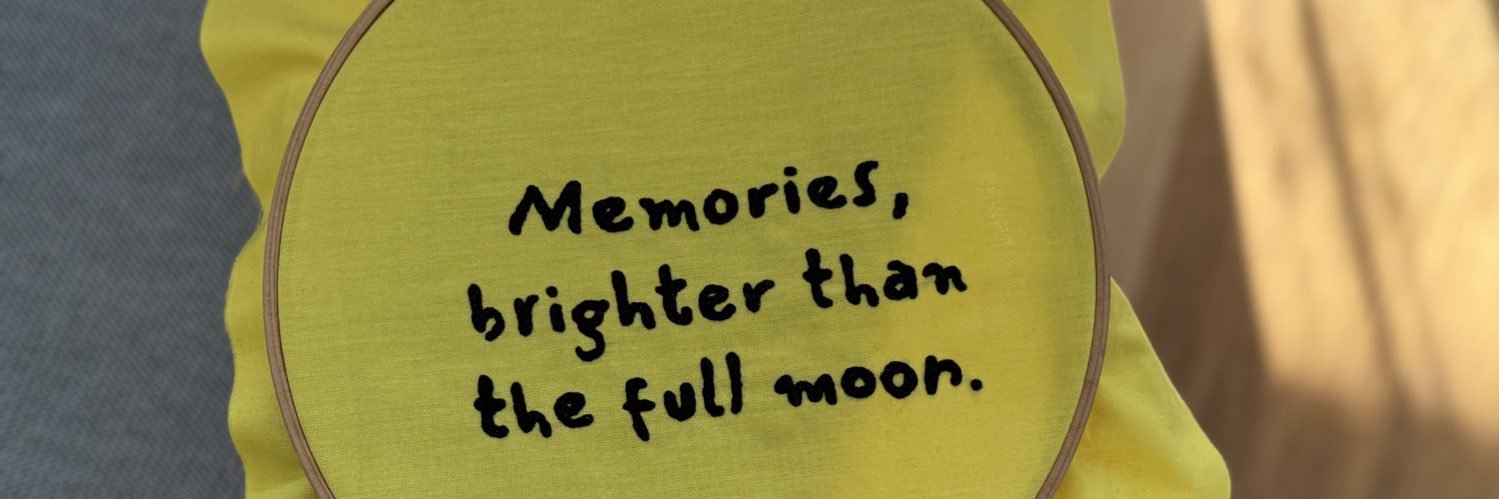 Memories,
brighter than
the full moon.